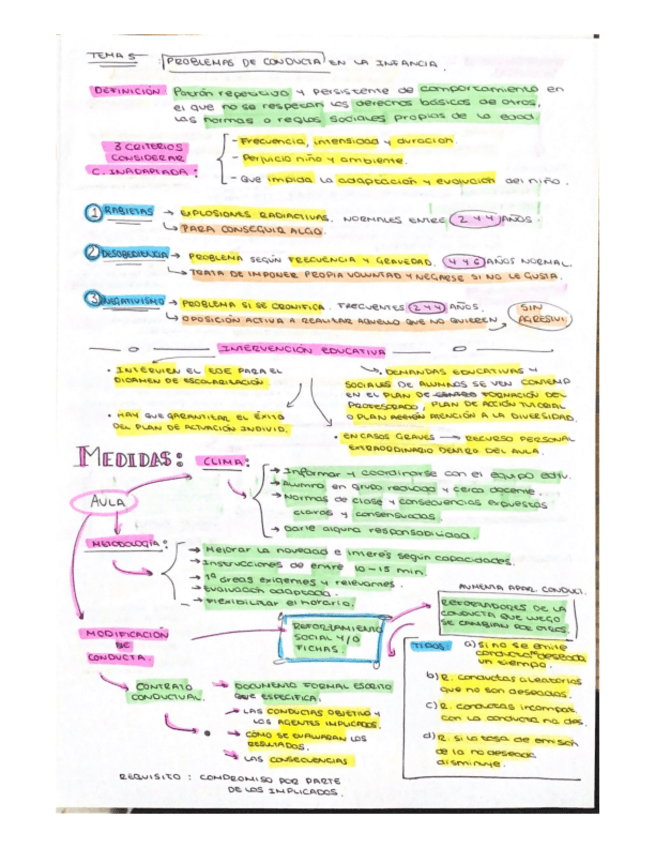 TEMA 5: PROBLEMAS DE CONDUCTA EN LA INFANCIA.
DEFINICIÓN: Patrón repetitivo y persistente de comportamiento en
el que no se respetan los derechos básicos de otros,
las normas o reglas sociales propias de la edad.
3 CRITERIOS
CONSIDERAR
C. INADAPTADA:
- Frecuencia, intensidad y duración.
- Perjuicio niño y ambiente.
- Que impida la adaptación y evolución del niño.
1 RABIETAS → EXPLOSIONES RADIACTIVAS. NORMALES ENTRE 2 Y 4 AÑOS.
↳ PARA CONSEGUIR ALGO.
2 DESOBEDIENCIA → PROBLEMA SEGÚN FRECUENCIA Y GRAVEDAD. 4 Y 6 AÑOS NORMAL.
↳ TRATA DE IMPONER PROPIA VOLUNTAD Y NEGARSE SI NO LE GUSTA.
3 NEGATIVISMO → PROBLEMA SI SE CRONIFICA. FRECUENTES 2 Y 4 AÑOS.
↳ OPOSICIÓN ACTIVA A REALIZAR AQUELLO QUE NO QUIEREN → SIN
AGRESIVI.
INTERVENCIÓN EDUCATIVA
• INTERVIEN EL EOE PARA EL
DICAMEN DE ESCOLARIZACIÓN.
• HAY QUE GARANTIZAR EL ÉXITO
DEL PLAN DE ACTUACIÓN INDIVID.
↳ DEMANDAS EDUCATIVAS Y
SOCIALES DE ALUMNOS SE VEN CONTEMP
EN EL PLAN DE CENTRO FORMACIÓN DEL
PROFESORADO, PLAN DE ACCIÓN TUTORIAL
O PLAN ACCIÓN ATENCIÓN A LA DIVERSIDAD.
• EN CASOS GRAVES → RECURSO PERSONAL
EXTRAORDINARIO DENTRO DEL AULA.
MEDIDAS:
AULA
CLIMA:
→ Informar y coordinarse con el equipo edtv.
→ Alumno en grupo reducido y cerca docente.
→ Normas de clase y consecuencias expuestas
claras y consensuadas.
→ Darle alguna responsabilidad.
METODOLOGÍA:
→ Mejorar la novedad e interés según capacidades.
→ Instrucciones de entre 10-15 min.
→ 1ª áreas exigemes y relevantes.
→ Evaluación adaptada.
→ Flexibilizar el horario.
MODIFICACIÓN
DE
CONDUCTA.
REFORZAMIENTO
SOCIAL Y/O
FICHAS.
AUMENTA APAR. CONDUCT.
REFORZADORES DE LA
CONDUCTA QUE LUEGO
SE CAMBIAN POR OTROS.
TIPOS:
a) si no se emite
conducta deseada
un tiempo.
b) R. conductas aleatorias
que no son deseadas.
c) R. conductas incompat.
con la conducta no des.
d) R. si la tasa de emisión
de la no deseada
disminuye.
CONTRATO
CONDUCTUAL.
→ DOCUMENTO FORMAL ESCRITO
QUE ESPECIFICA:
→ LAS CONDUCTAS OBJETIVO Y
LOS AGENTES IMPLICADOS.
→ CÓMO SE EVALUARAN LOS
RESULTADOS.
→ LAS CONSECUENCIAS
REQUISITO: COMPROMISO POR PARTE
DE LOS IMPLICADOS.